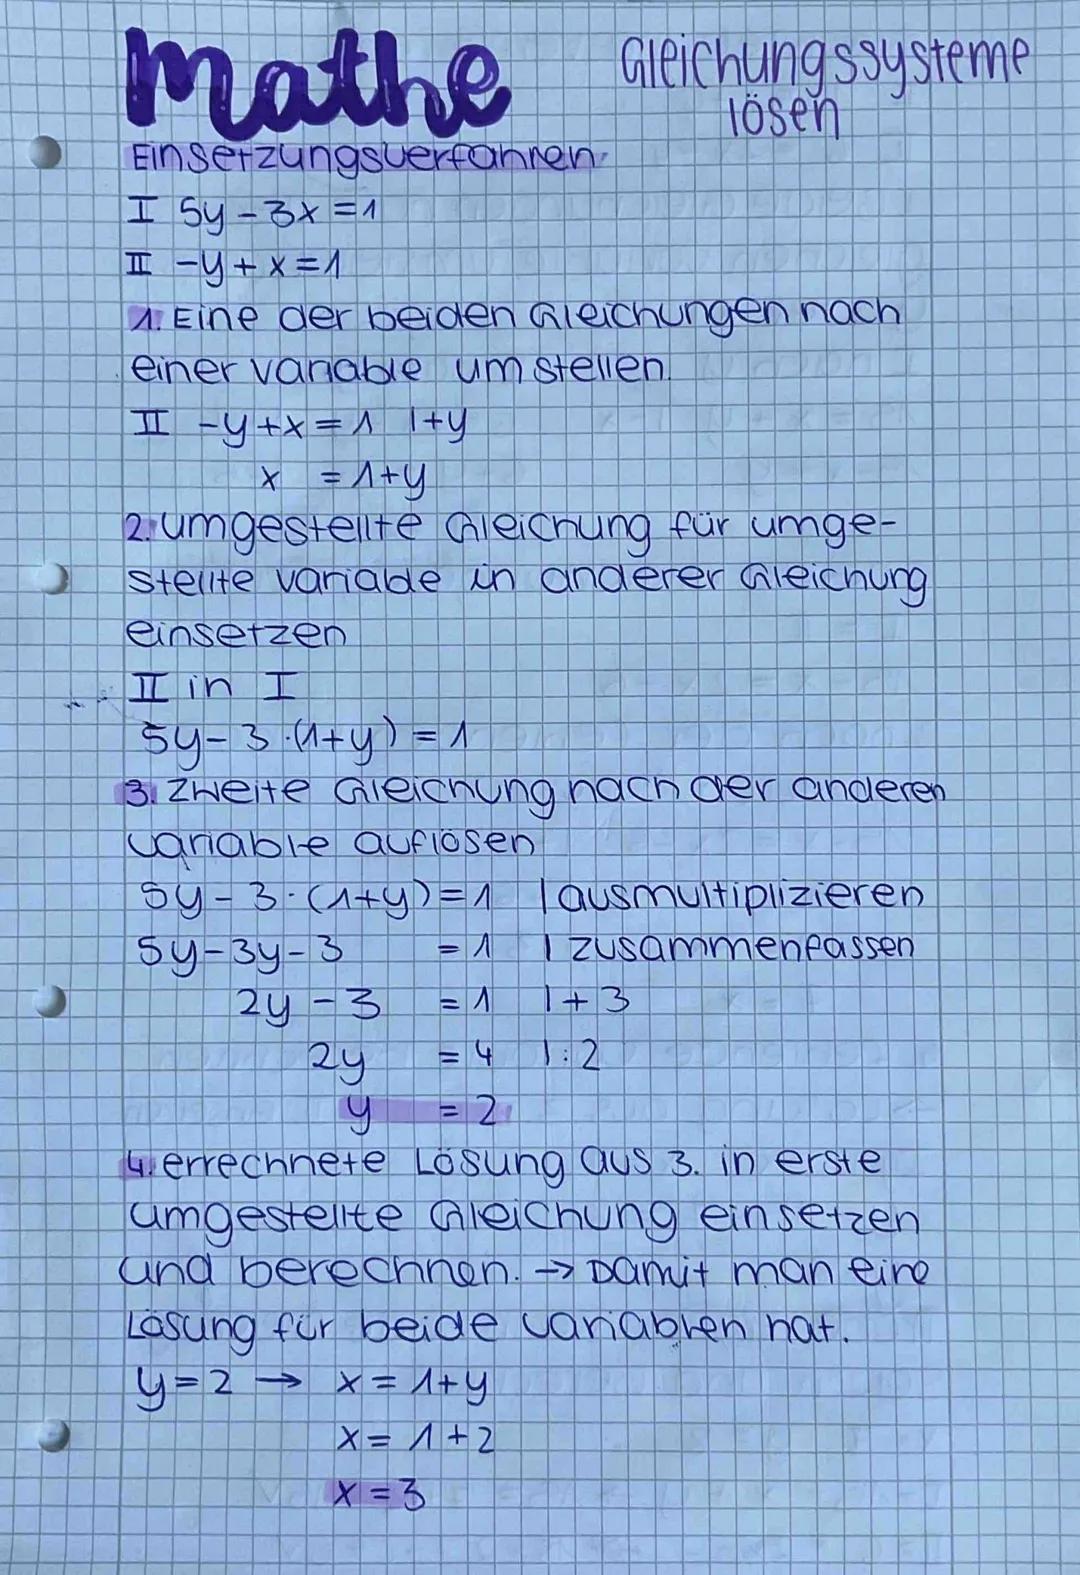 Mathe
Gleichungssysteme
lösen
Einsetzungsverfahren
I 5y - 3x = 1
II -y + x = 1
1. Eine der beiden Gleichungen nach
einer variable umstellen.
II -y + x = 1 | +y
x = 1+y
2. umgestellte Gleichung für umge-
stellte variable in anderer Gleichung
einsetzen
II in I
5y - 3 · (1+y) = 1
3. Zweite Gleichung nach der anderen
variable auflösen
5y - 3 · (1+y) = 1 | ausmultiplizieren
5y - 3y - 3 = 1 | zusammenfassen
2y - 3 = 1 | + 3
2y = 4 | : 2
y = 2
4. errechnete Lösung aus 3. in erste
umgestellte Gleichung einsetzen
und berechnen. → Damit man eine
Lösung für beide variablen hat.
y = 2 → x = 1+y
x = 1+2
x = 3